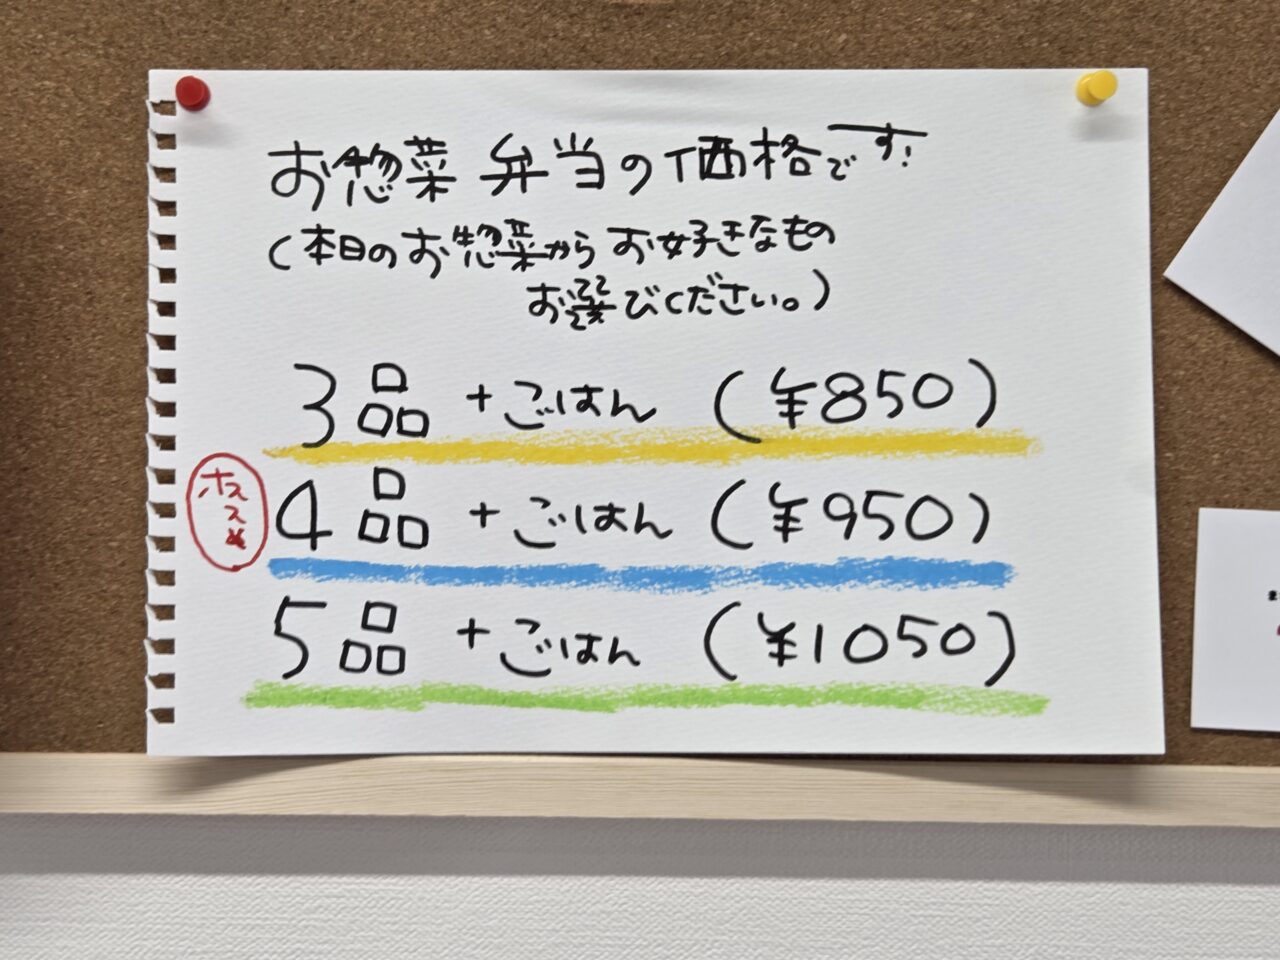 お惣菜 弁当の価格です!
(本日のお惣菜からお好きなもの
お選びください。)
3品 +ごはん (¥850)
オススメ
4品 +ごはん (¥950)
5品 +ごはん (¥1050)
ま